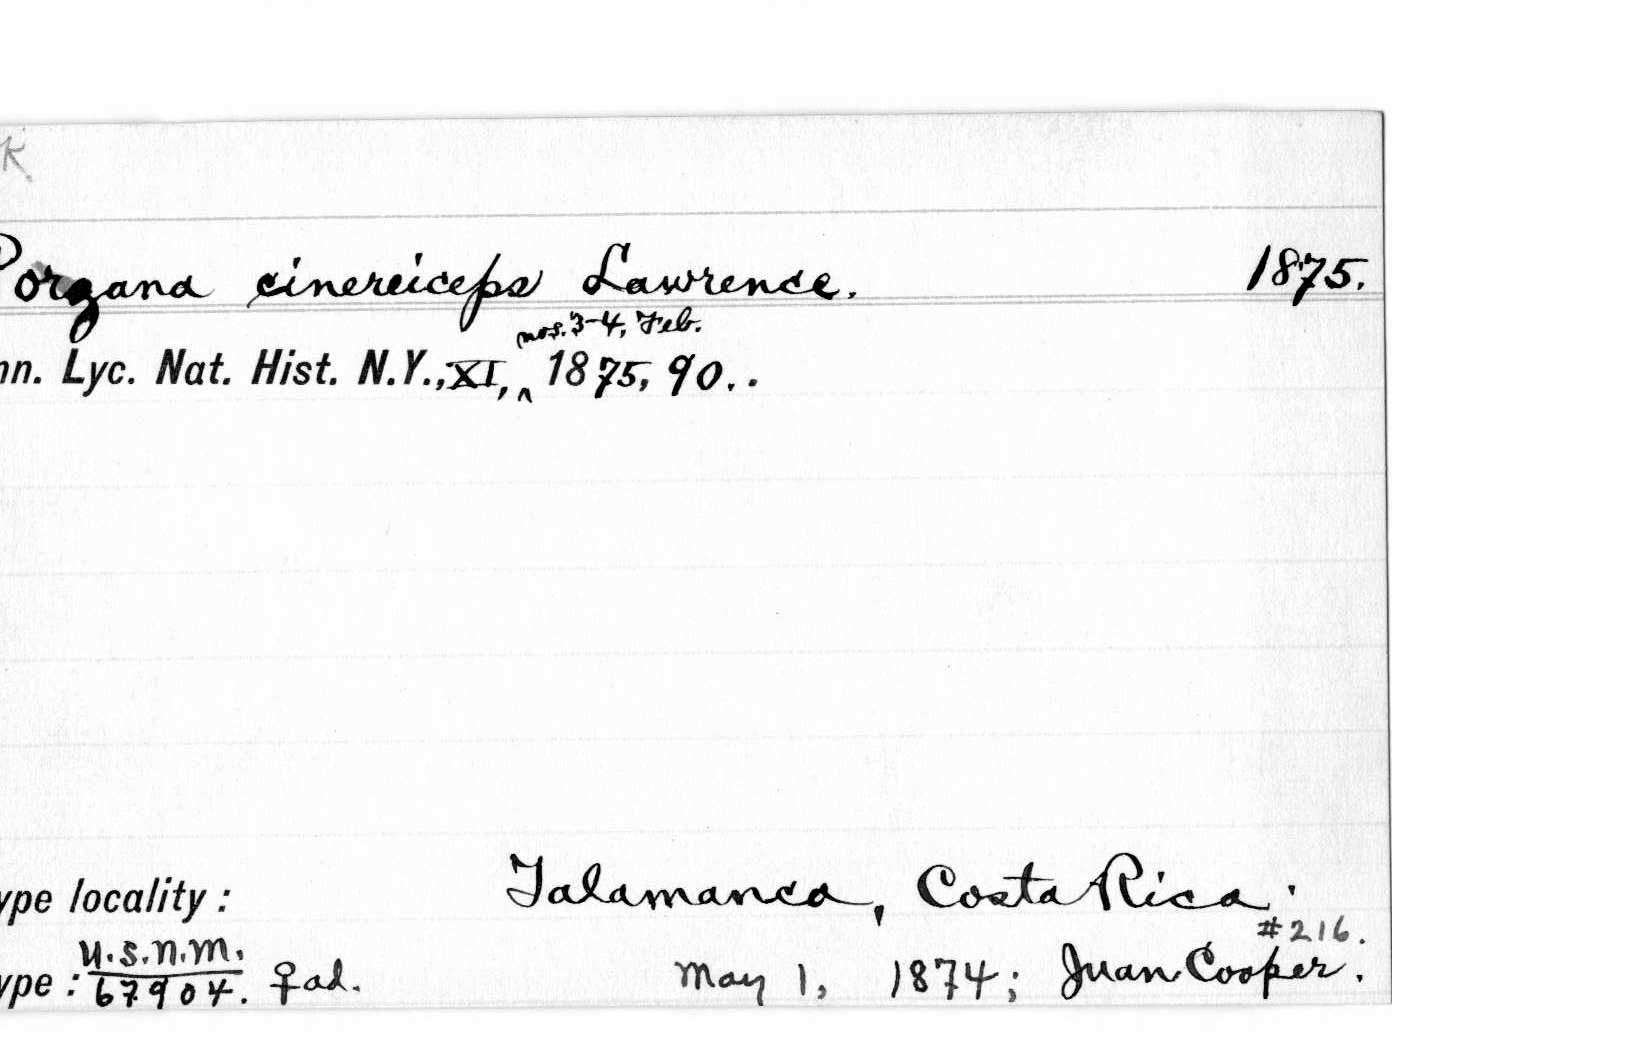 K.
Porzana cinereiceps Lawrence. 1875.
nos. 3-4, Feb.
nn. Lyc. Nat. Hist. N.Y., XI, ^ 1875, 90..
ype locality: Talamanca, Costa Rica.
#216.
U.S.N.M.
ype: 67904. ♀ad. May 1, 1874; Juan Cooper.